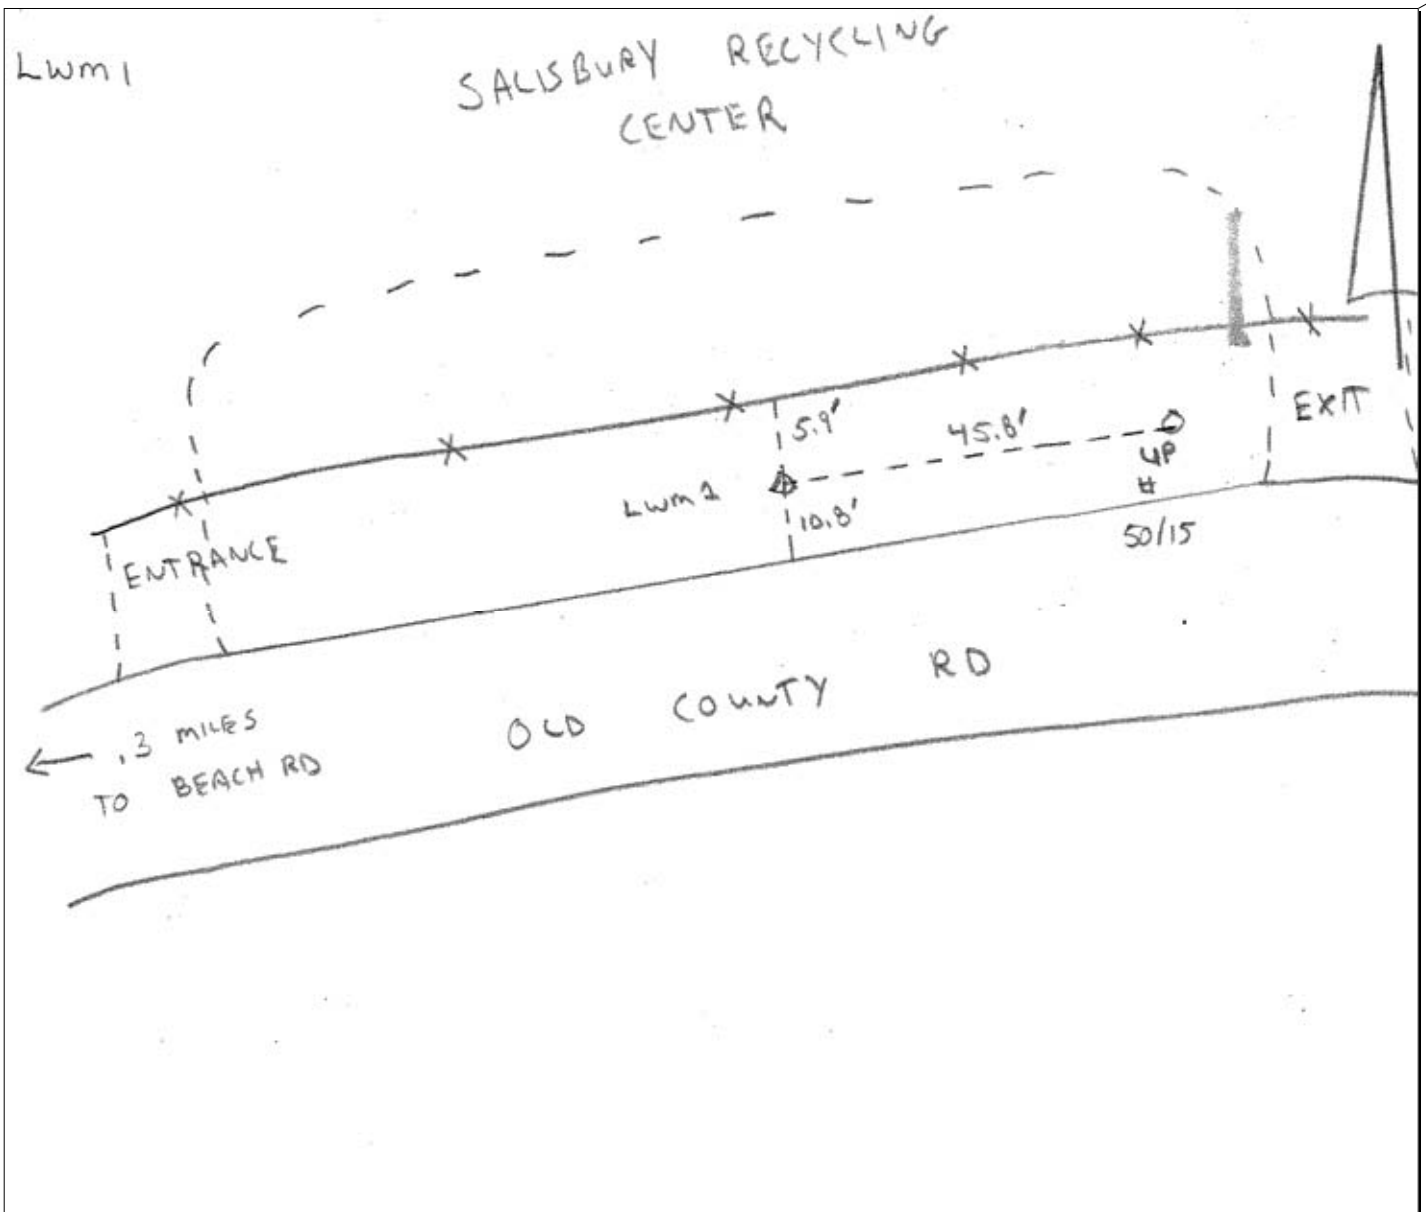 LWM1
SALISBURY RECYCLING
CENTER
EXIT
5.9'
45.8'
UP
#
50/15
LWM1
10.8'
ENTRANCE
OLD COUNTY RD
← .3 MILES
TO BEACH RD